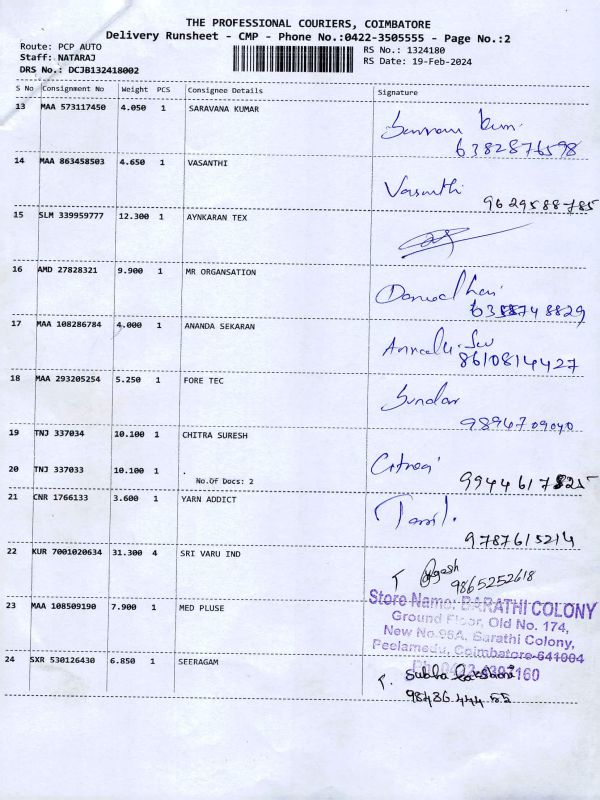 THE PROFESSIONAL COURIERS, COIMBATORE
Delivery Runsheet - CMP - Phone No.:0422-3505555 - Page No.:2
Route: PCP AUTO
RS No.: 1324180
Staff: NATARAJ
RS Date: 19-Feb-2024
DRS No.: DCJB132418002
S No Consignment No Weight PCS Consignee Details Signature
13 MAA 573117450 4.050 1 SARAVANA KUMAR
6382876598
14 MAA 863458503 4.650 1 VASANTHI
Vasanthi
9629588785
15 SLM 339959777 12.300 1 AYNKARAN TEX
16 AMD 27828321 9.900 1 MR ORGANSATION
17 MAA 108286784 4.000 1 ANANDA SEKARAN
8610814427
18 MAA 293205254 5.250 1 FORE TEC
Sundar
9894709040
19 TNJ 337034 10.100 1 CHITRA SURESH
20 TNJ 337033 10.100 1 .
No.Of Docs: 2
21 CNR 1766133 3.600 1 YARN ADDICT
Tamil.
9787615214
22 KUR 7001020634 31.300 4 SRI VARU IND
9865252618
Store Name: BARATHI COLONY
Ground Floor, Old No. 174,
23 MAA 108509190 7.900 1 MED PLUSE
New No.96A, Barathi Colony,
Peelamedu, Coimbatore-641004
24 SXR 530126430 6.850 1 SEERAGAM